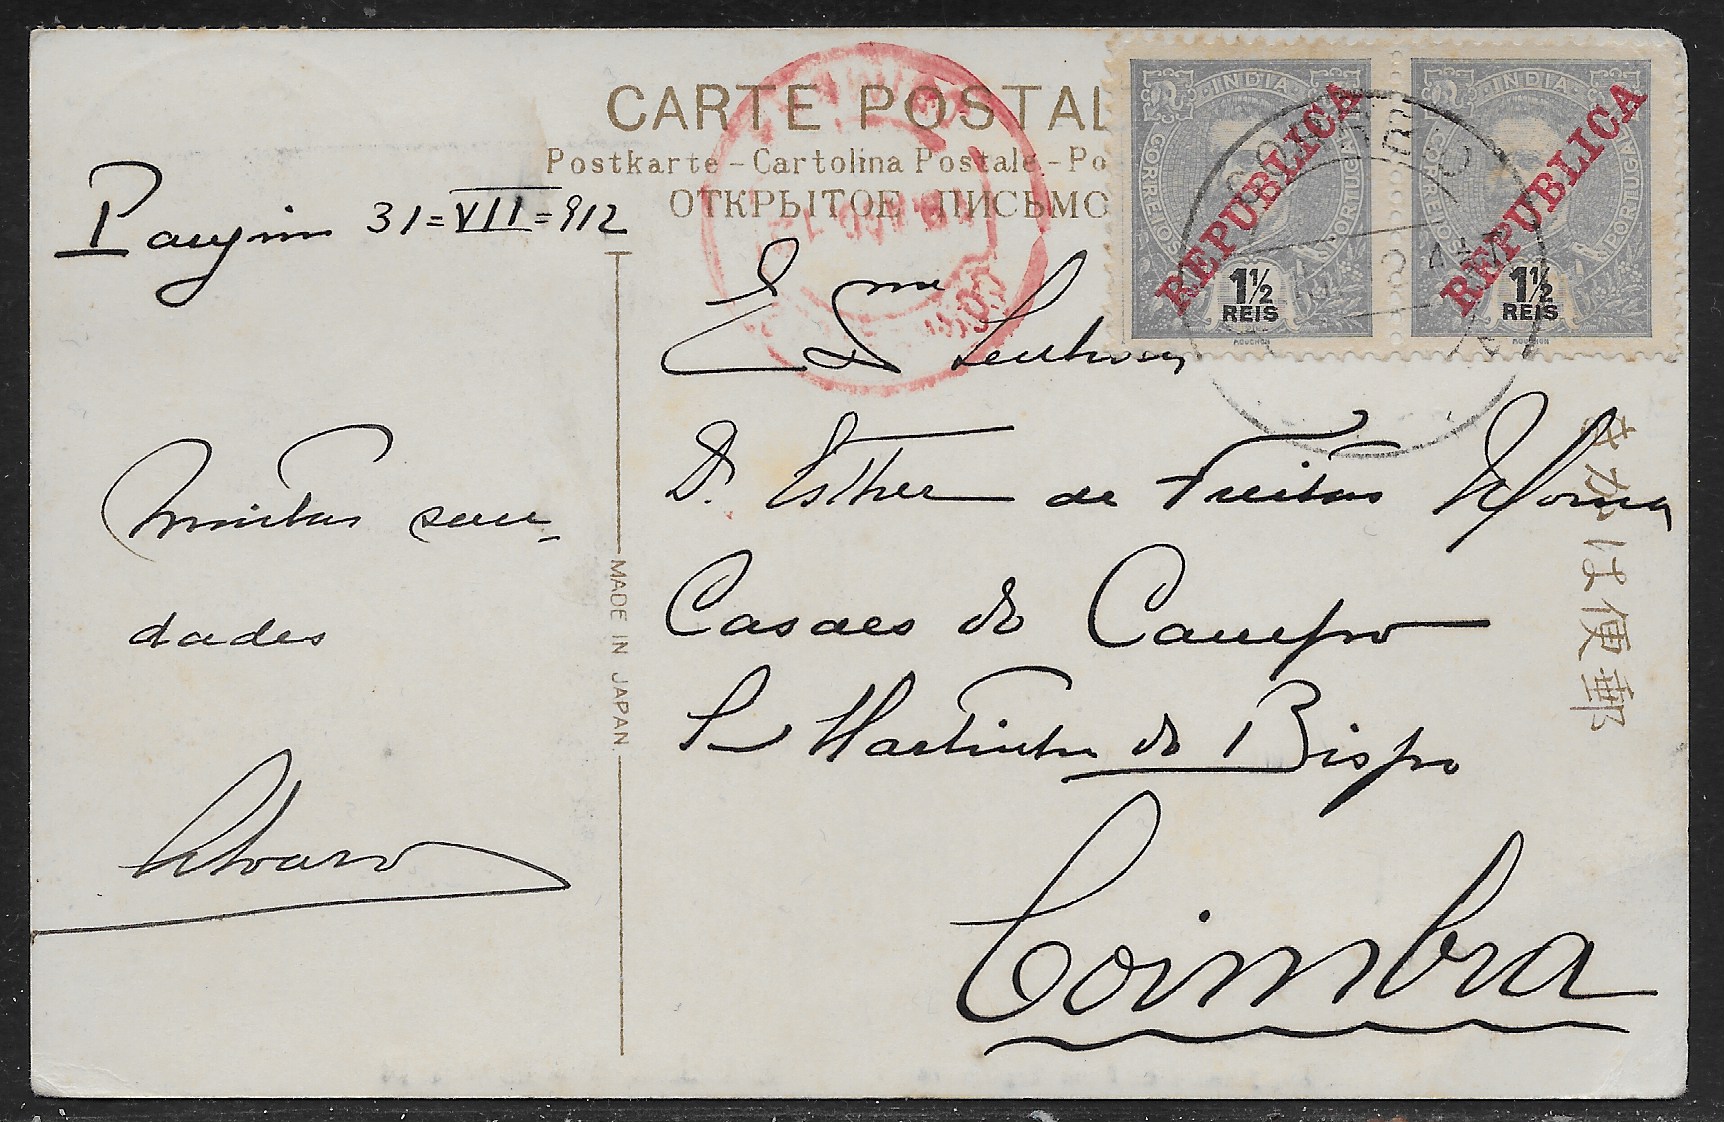 CARTE POSTAL
Postkarte - Cartolina Postale. - Po
ОТКРЫТОЕ ПИСЬМО
INDIA
CORREIOS
PORTUGAL
REPUBLICA
1½
REIS
MOUCHON
INDIA
CORREIOS
PORTUGAL
REPUBLICA
1½
REIS
MOUCHON
Pangim 31=VII=912
Muitas sau-
dades
Alvaro
MADE IN JAPAN.
Exma Senhora
D. Esther de Freitas
Casaes do Campo
S. Martinho do Bispo
Coimbra
きがは便郵